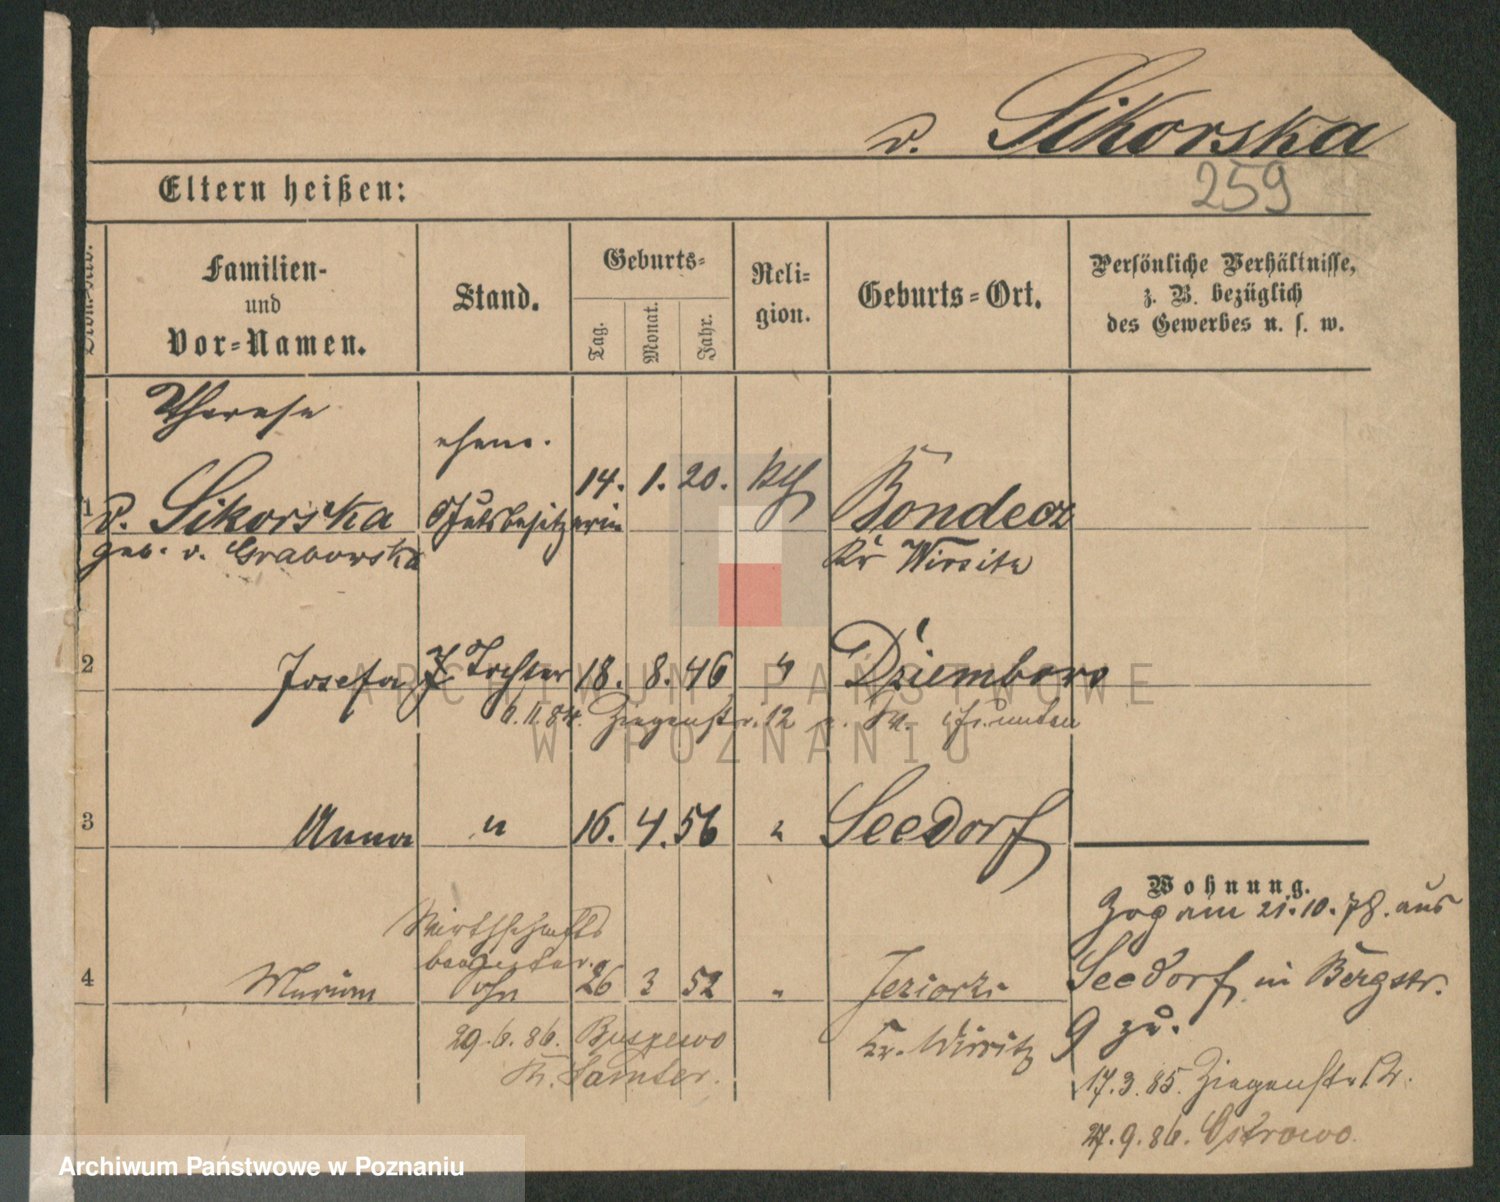 v. Sikorska
259
Eltern heißen:
Familien-
und
Vor-Namen.
Stand.
Geburts-
Tag.
Monat.
Jahr.
Reli-
gion.
Geburts-Ort.
Persönliche Verhältnisse,
z. B. bezüglich
des Gewerbes u. s. w.
Therese
ehem.
1 v. Sikorska Gutsbesitzerin 14. 1. 20. kth Bondecz
geb. v. Grabowska Kr Wirsitz
2 Josefa Tochter 18. 8. 46 " Dziembowo
84. Ziegenstr. 12
3 Anna " 16. 4. 56 " Seedorf
Wohnung.
Zog am 21.10.78. aus
Seedorf in Bergstr.
9 zu.
Wirthschafts
beamter.
4 Marian Sohn 26 3 52 " Jeziorki
Kr. Wirsitz
29.6.86. Buszewo
Kr. Samter.
17.3.85. Ziegenstr. 12.
27.9.86. Ostrowo.
ARCHIWUM PAŃSTWOWE
W POZNANIU
Archiwum Państwowe w Poznaniu